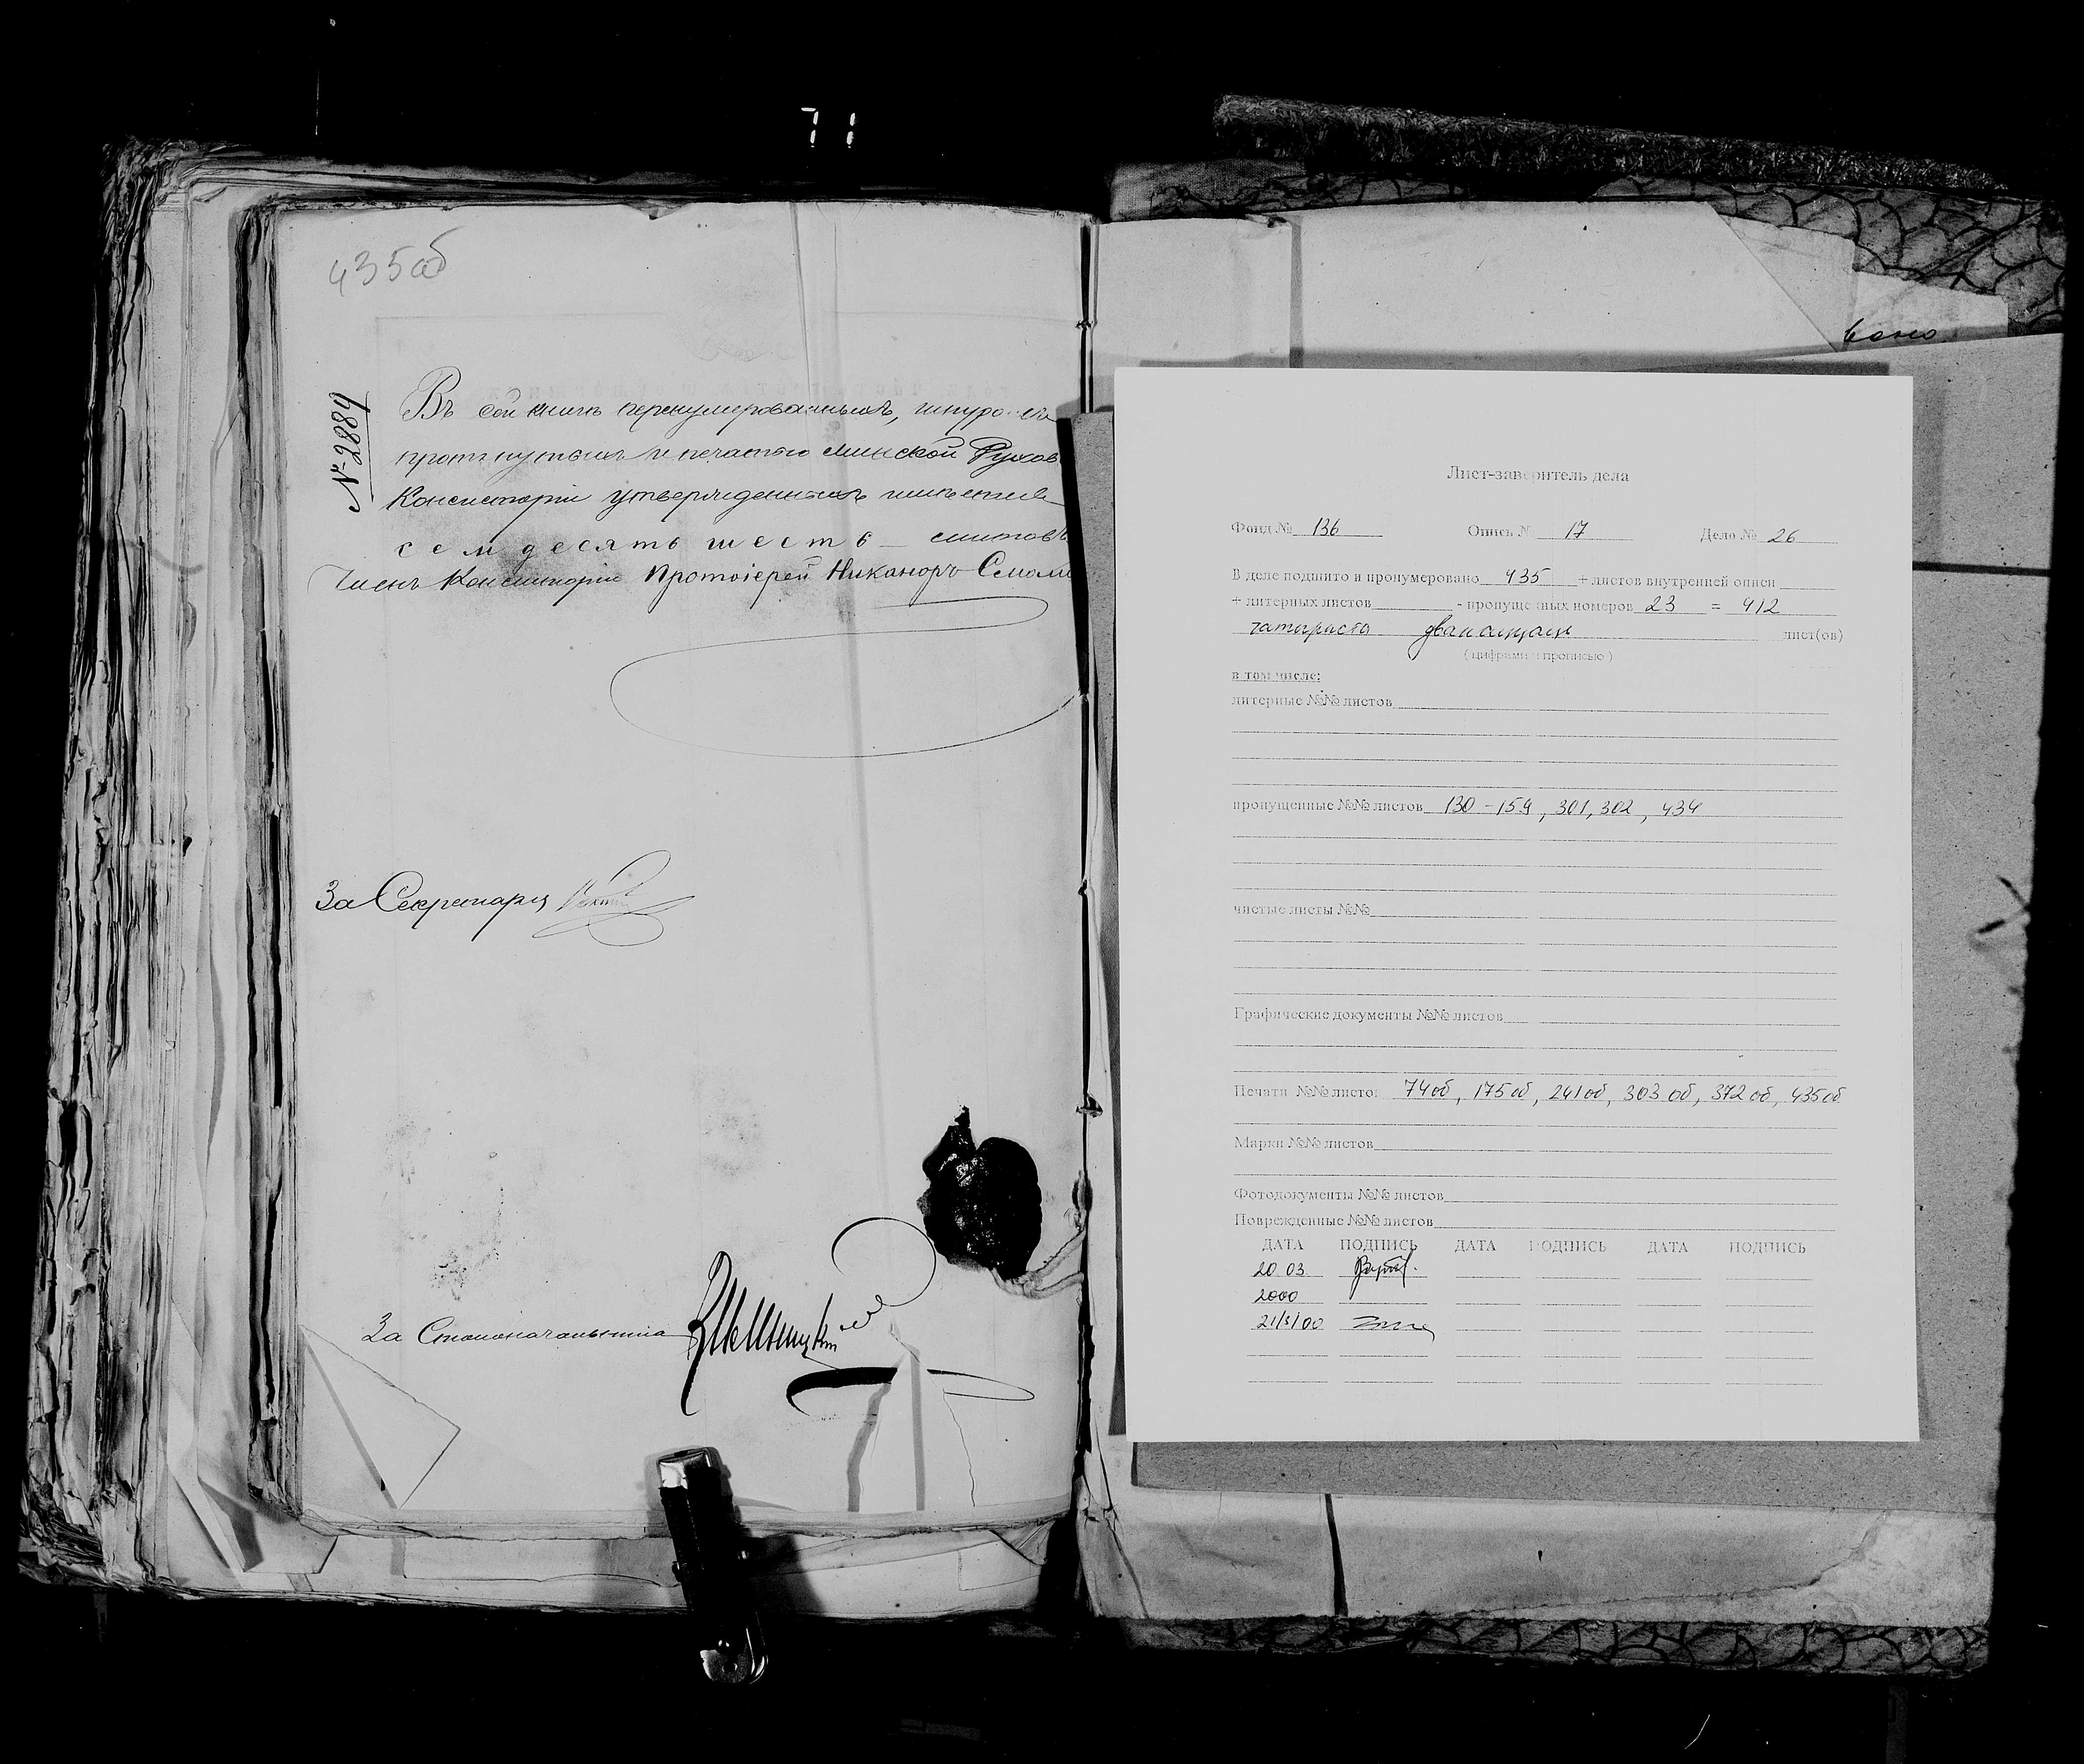 71
435об
№ 2889
Въ сей книгѣ перенумерованныхъ, шнуро
протянутыхъ и печатью Минской Духов
Консисторіи утвержденныхъ
семдесять шесть листовъ
Членъ Консисторіи Протоіерей Никаноръ Смоли
За Секретаря
За Столоначальника
вано
Лист-заверитель дела
Фонд № 136 Опись № 17 Дело № 26
В деле подшито и пронумеровано 435 + листов внутренней описи
+ литерных листов - пропущенных номеров 23 = 412
четыреста двенадцать лист(ов)
(цифрами и прописью)
в том числе:
литерные №№ листов
пропущенные №№ листов 130-159, 301, 302, 434
чистые листы №№
Графические документы №№ листов
Печати №№ листов 74об, 175об, 241об, 303об, 372об, 435об
Марки №№ листов
Фотодокументы №№ листов
Поврежденные №№ листов
ДАТА ПОДПИСЬ ДАТА ПОДПИСЬ ДАТА ПОДПИСЬ
20 03
2000
21/3/00